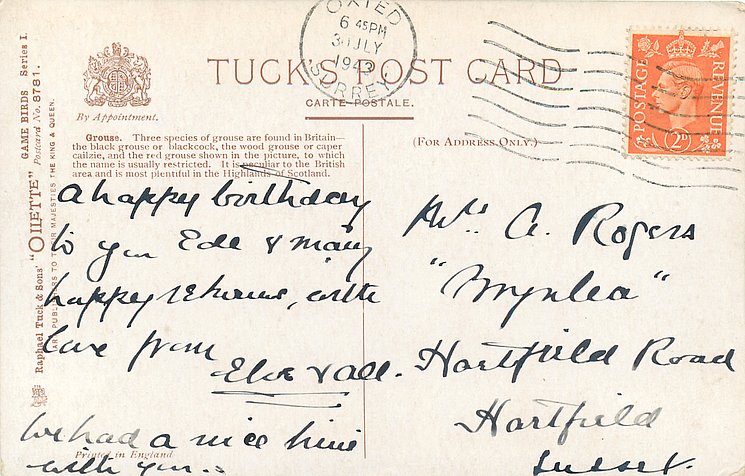 OXTED
6 45PM
30 JLY
1943
SURREY
TUCK'S POST CARD
CARTE POSTALE.
By Appointment.
(FOR ADDRESS ONLY.)
POSTAGE
REVENUE
2D
Raphael Tuck & Sons' "OILETTE" GAME BIRDS Series I.
Postcard No. 8781.
ART PUBLISHERS TO THEIR MAJESTIES THE KING & QUEEN.
Grouse. Three species of grouse are found in Britain—
the black grouse or blackcock, the wood grouse or caper
cailzie, and the red grouse shown in the picture, to which
the name is usually restricted. It is peculiar to the British
area and is most plentiful in the Highlands of Scotland.
A happy birthday
to you Ede & many
happy returns, with
love from
Elsie & all.
We had a nice time
with you..
Printed in England
Mrs A. Rogers
"Mynlea"
Hartfield Road
Hartfield
Sussex.